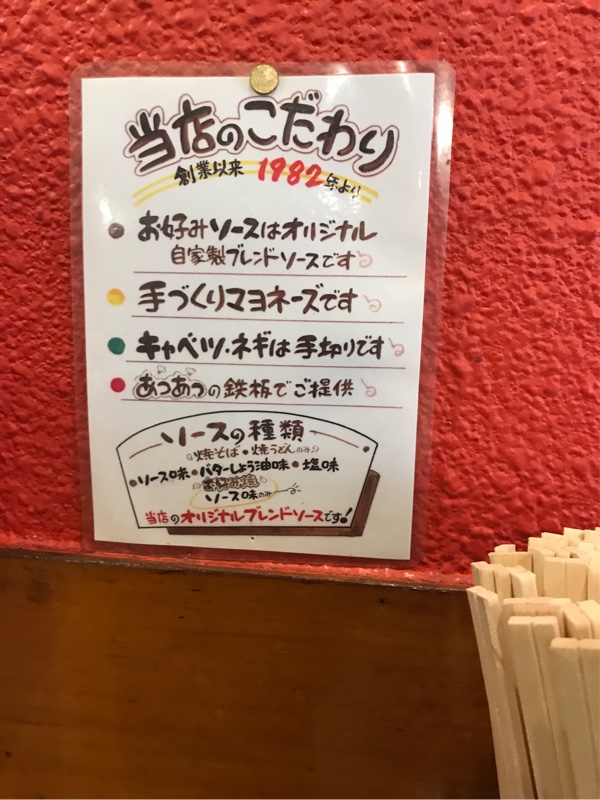 当店のこだわり
創業以来 1982年より
お好みソースはオリジナル
自家製ブレンドソースです
手づくりマヨネーズです
キャベツ・ネギは手切りです
あつあつの鉄板でご提供
ソースの種類
焼そば・焼うどんのみ
・ソース味・バターしょう油味・塩味
ソース味のみ
当店のオリジナルブレンドソースです!